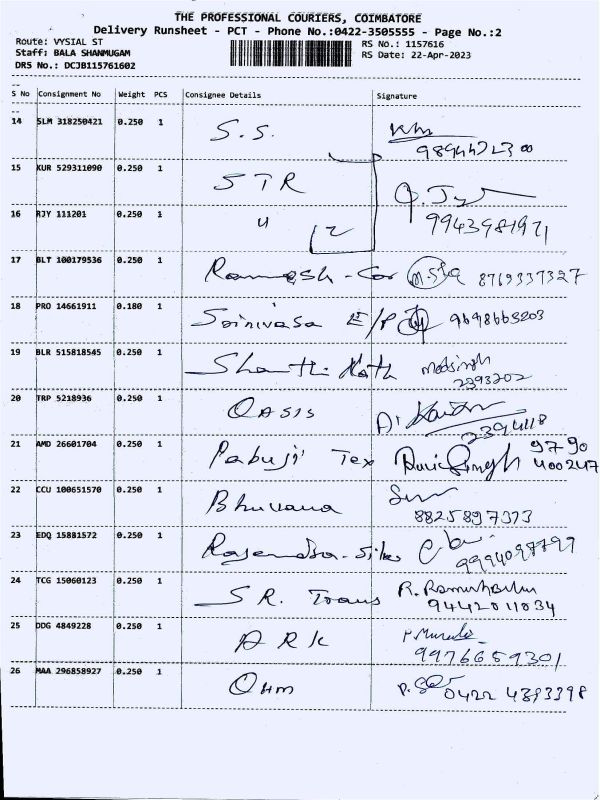 THE PROFESSIONAL COURIERS, COIMBATORE
Delivery Runsheet - PCT - Phone No.:0422-3505555 - Page No.:2
Route: VYSIAL ST
RS No.: 1157616
Staff: BALA SHANMUGAM
RS Date: 22-Apr-2023
DRS No.: DCJB115761602
S No Consignment No Weight PCS Consignee Details Signature
14 SLM 318250421 0.250 1 S.S.
15 KUR 529311090 0.250 1 STR
16 RJY 111201 0.250 1 " 2
9943981971
17 BLT 100179536 0.250 1 Ramesh - Car 8769337327
18 PRO 14661911 0.180 1 Srinivasa E/P 9698665203
19 BLR 515818545 0.250 1 Shanthi Kath
2393202
20 TRP 5218936 0.250 1 OASIS
21 AMD 26601704 0.250 1 Pabuji Tex 9790
400247
22 CCU 100651570 0.250 1 Bhuvana
8825897373
23 EDQ 15881572 0.250 1
24 TCG 15060123 0.250 1 S R. Trans
9442011034
25 DDG 4849228 0.250 1 A R K
9976659301
26 MAA 296858927 0.250 1 Ohm 0422 4393398